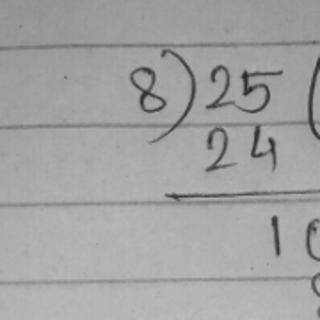 8)25(
24
10